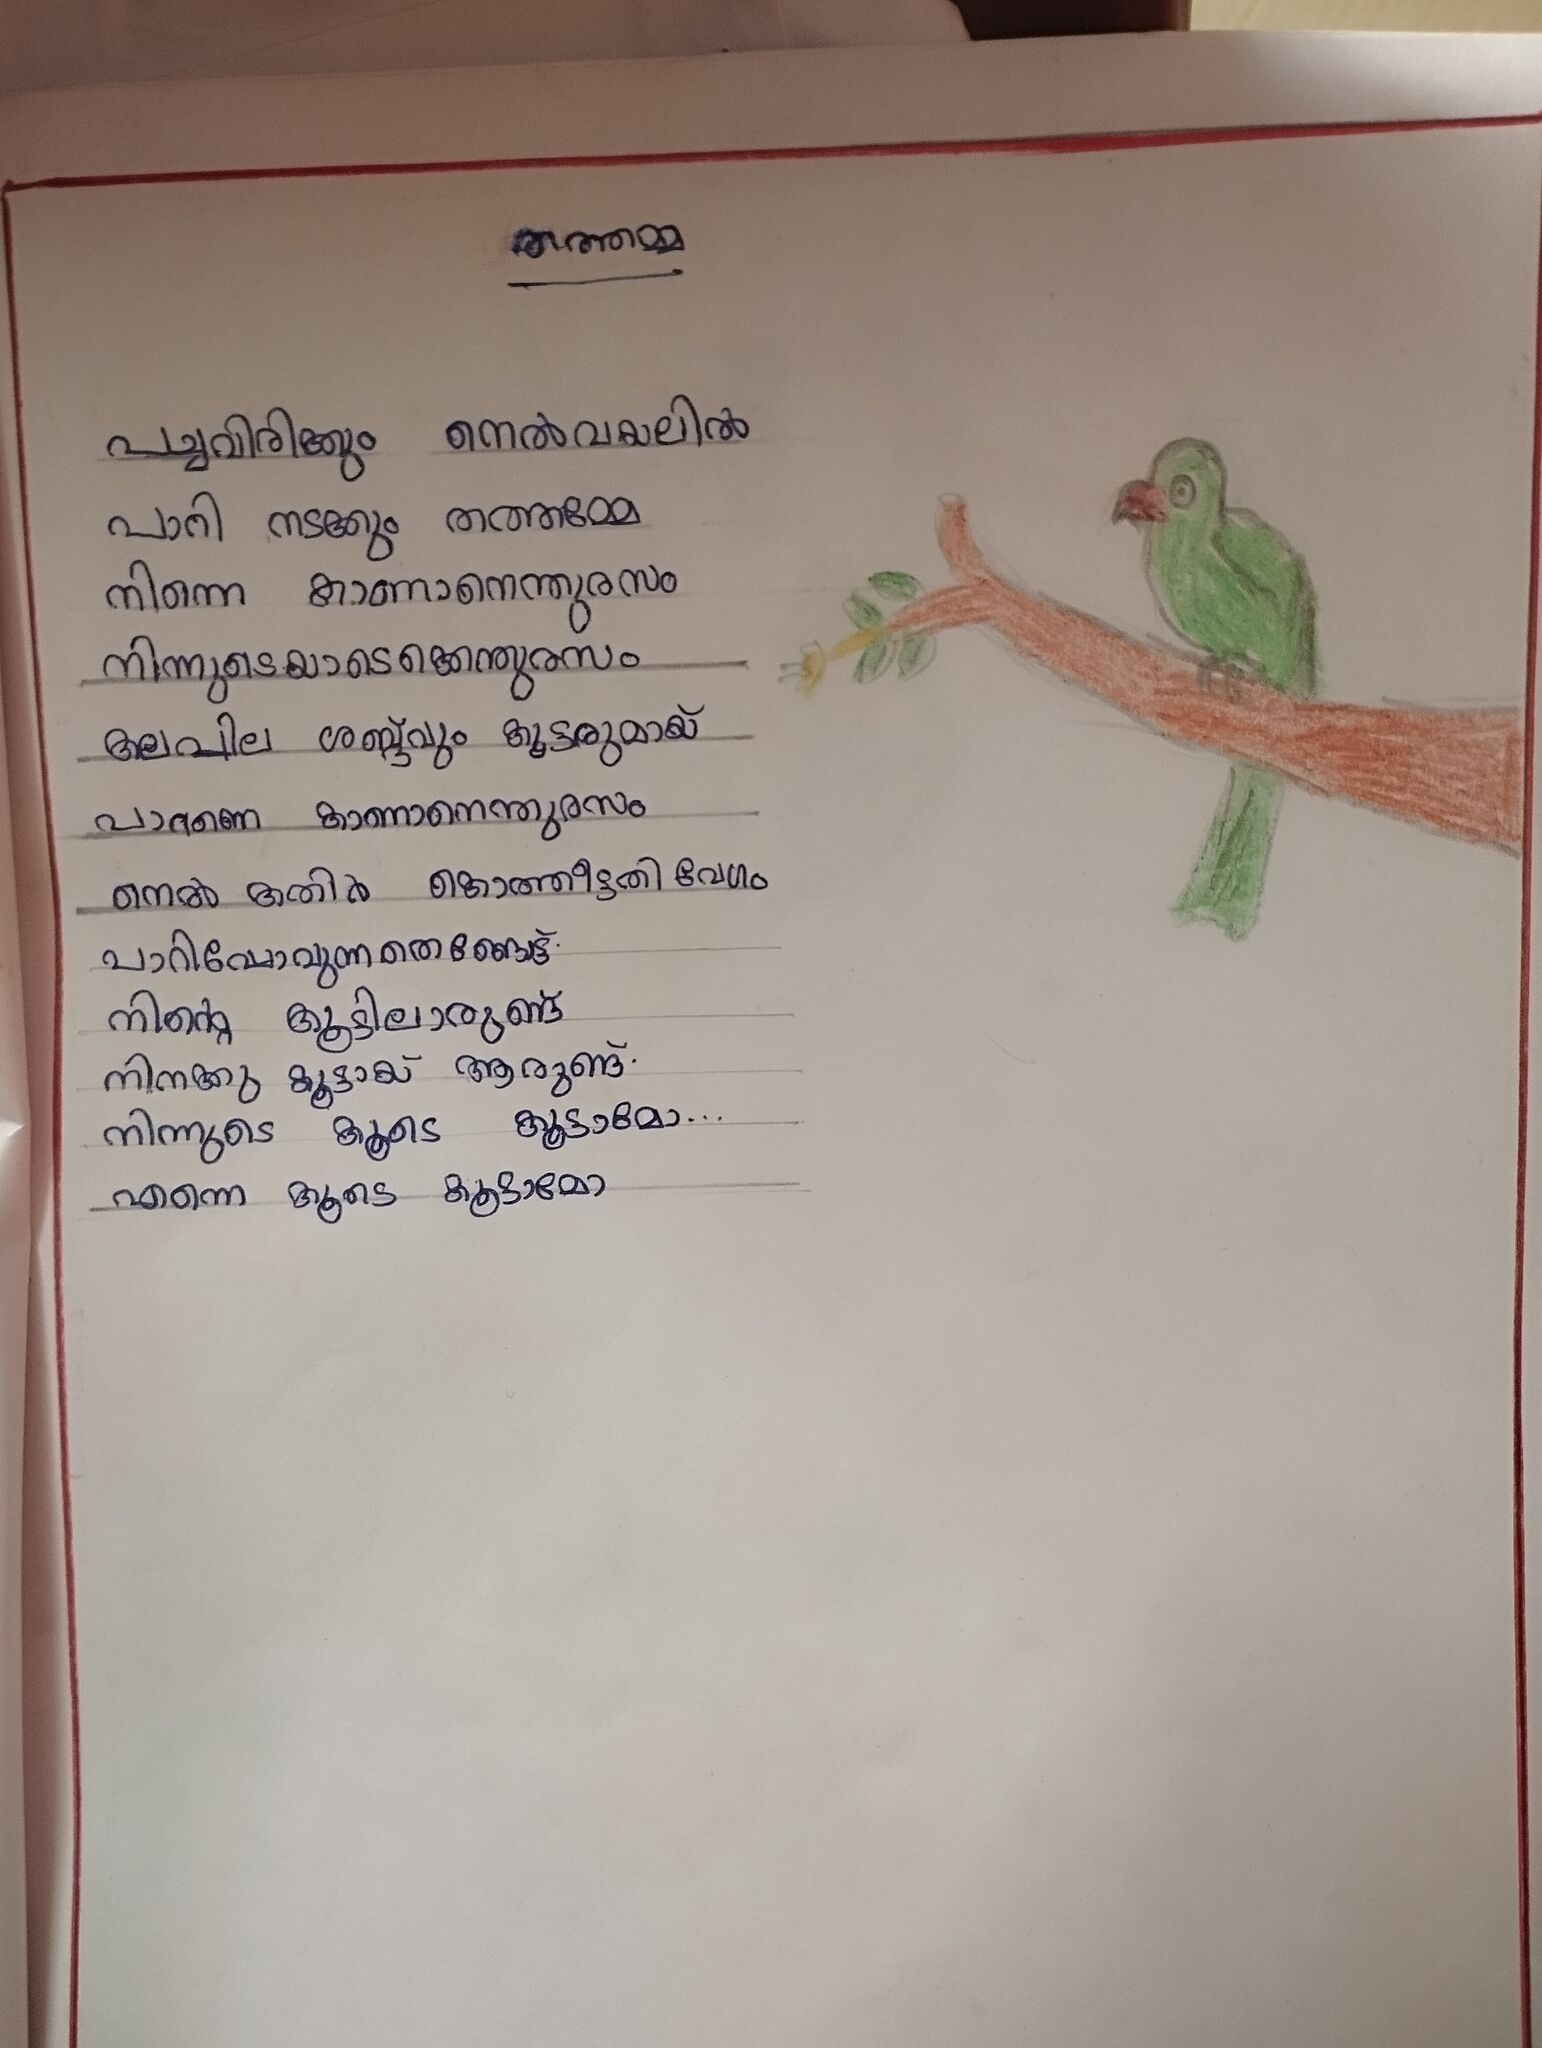 തത്തമ്മ
പച്ചവിരിക്കും നെൽവയലിൽ
പാറി നടക്കും തത്തമ്മേ
നിന്നെ കാണാനെന്തുരസം
നിന്നുടെയാടെക്കെന്തുരസം
കലപില ശബ്ദ്ദവും കൂട്ടരുമായ്
പാറണെ കാണാനെന്തുരസം
നെൽ കതിർ കൊത്തീട്ടതി വേഗം
പാറിപ്പോവുന്നതെങ്ങോട്ട്.
നിന്റെ കൂട്ടിലാരുണ്ട്
നിനക്കു കൂട്ടായ് ആരുണ്ട്.
നിന്നുടെ കൂടെ കൂട്ടാമോ...
എന്നെ കൂടെ കൂട്ടാമോ